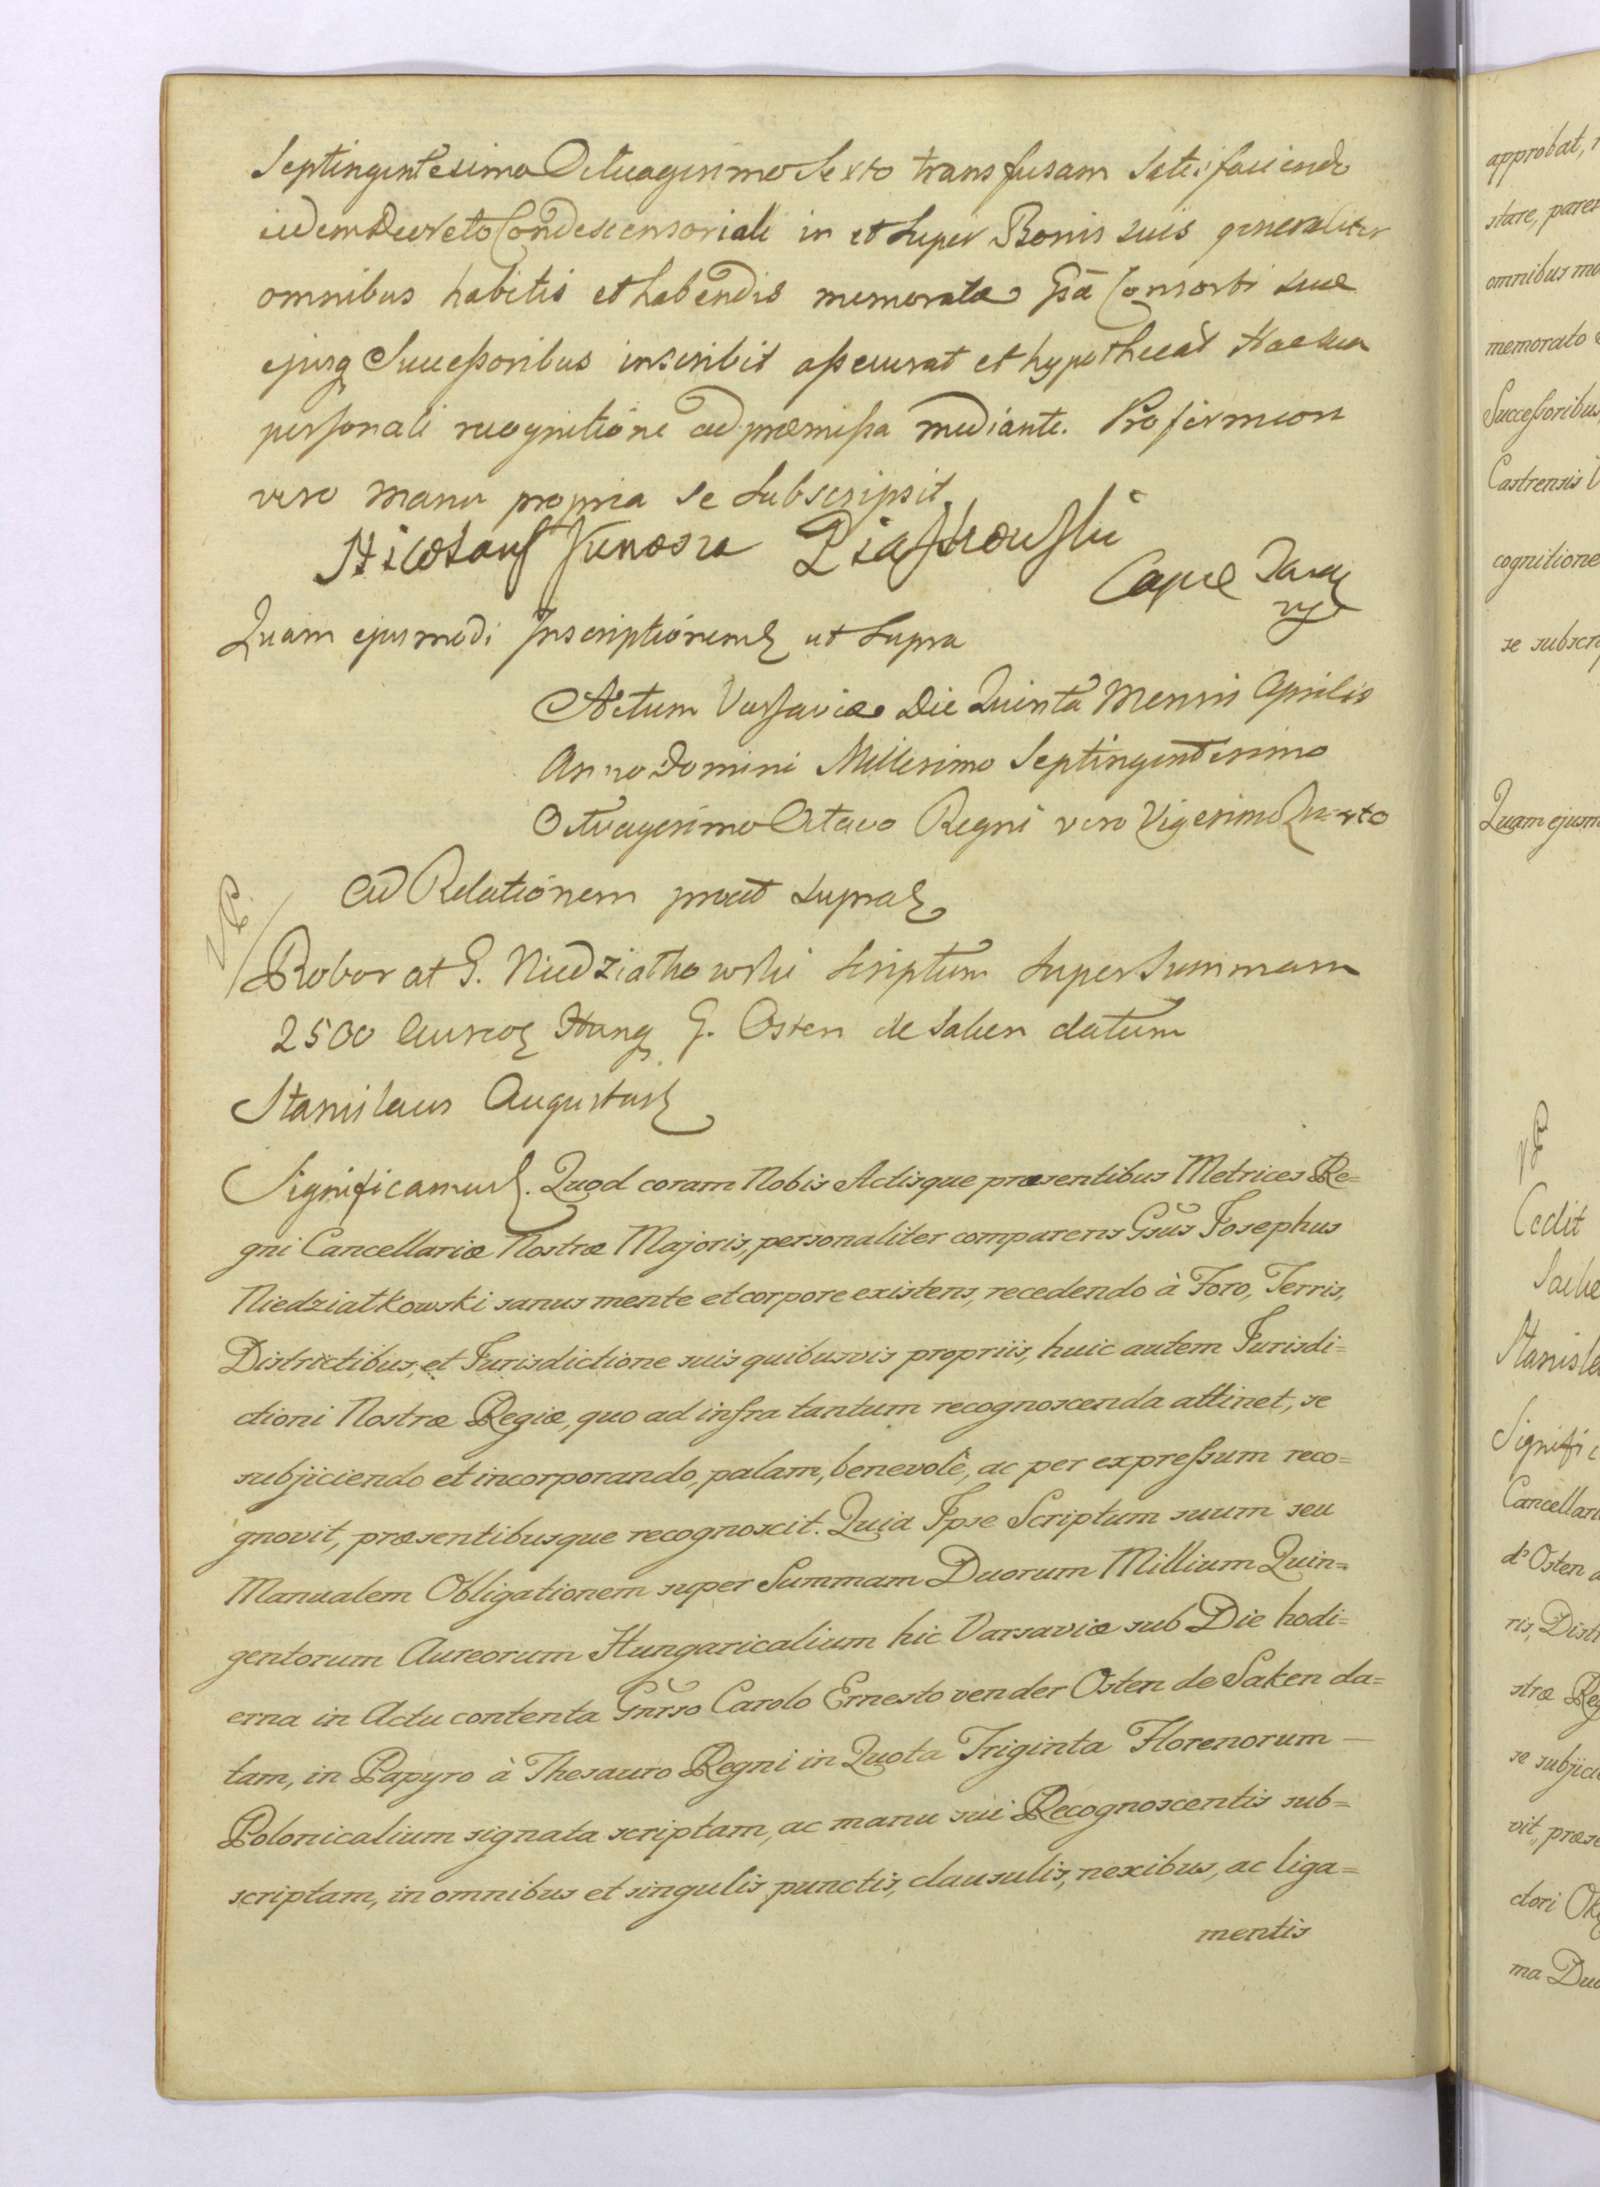 Septingentesimo Octuagesimo Sexto transfusam Satisfaciendo
eidem Decreto Condescensoriali in et Super Bonis suis generaliter
omnibus habitis et habendis memoratæ Gsã Consorti suæ
ejusq Succeßoribus inscribit aßecurat et hypothecat Hac sua
personali recognitione ad præmißa mediante. Pro firmiori
vero manu propria se Subscripsit
Nicolaus Junosza Piaskowski
Quam ejusmodi Inscriptionem ut Supra
Actum Varsaviæ Die Quinta Mensis Aprilis
Anno Domini Millesimo Septingentesimo
Octuagesimo Octavo Regni vero Vigesimo Quarto
Ad Relationem prout supra
Roborat G. Niedziałkowski Scriptum Super Summam
2500 Aureor Hung G. Osten de Saken datum
Stanislaus Augustus
Significamus. Quod coram Nobis Actisque præsentibus Metrices Re=
gni Cancellariæ Nostræ Majoris, personaliter comparens Gsũs Josephus
Niedziałkowski sanus mente et corpore existens, recedendo à Foro, Terris,
Districtibus, et Jurisdictione suis quibusvis propriis, huic autem Jurisdi=
ctioni Nostræ Regiæ, quo ad infra tantum recognoscenda attinet, se
subjiciendo et incorporando, palam, benevolè, ac per expreßum reco=
gnovit, præsentibusque recognoscit. Quia Ipse Scriptum suum seu
Manualem Obligationem super Summam Duorum Millium Quin=
gentorum Aureorum Hungaricalium hic Varsaviæ sub Die hodi=
erna in Actu contenta Gñrso Carolo Ernesto von der Osten de Saken da=
tam, in Papyro à Thesauro Regni in Quota Triginta Florenorum —
Polonicalium signata scriptam, ac manu sui Recognoscentis sub=
scriptam, in omnibus et singulis punctis, clausulis, nexibus, ac liga=
mentis
approbat,
stare,
omnibus
memorato
Succeßoribus
Castrensis
cognitione
se
Quam
Cedit
d'Osten
se
ma